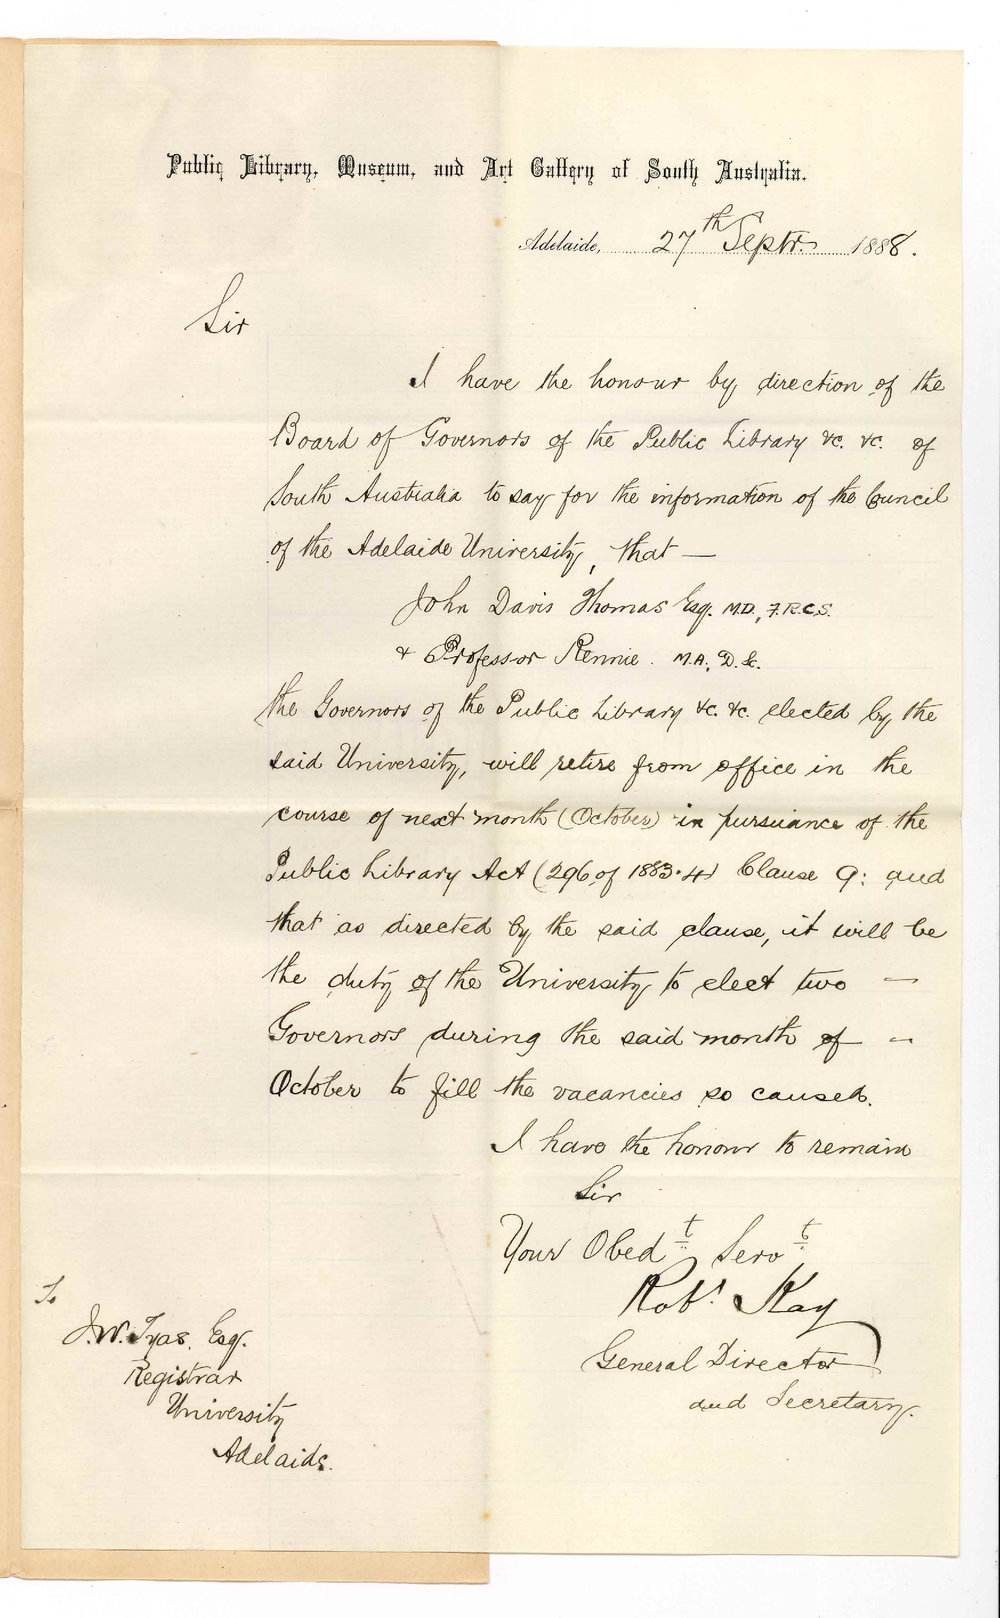 Public Library, Museum, and Art Gallery of South Australia.
Adelaide, 27th Septr. 1888.
Sir
I have the honour by direction of the
Board of Governors of the Public Library &c. &c. of
South Australia to say for the information of the Council
of the Adelaide University, that —
John Davis Thomas Esq. M.D., F.R.C.S.
& Professor Rennie. M.A., D.Sc.
the Governors of the Public Library &c. &c. elected by the
said University, will retire from office in the
course of next month (October) in pursuance of the
Public Library Act (296 of 1883.4) Clause 9: and
that as directed by the said clause, it will be
the duty of the University to elect two —
Governors during the said month of —
October to fill the vacancies so caused.
I have the honour to remain
Sir
Your Obedt Servt
Robt Kay
General Director
and Secretary.
To
J.W. Tyas, Esq.
Registrar
University
Adelaide.